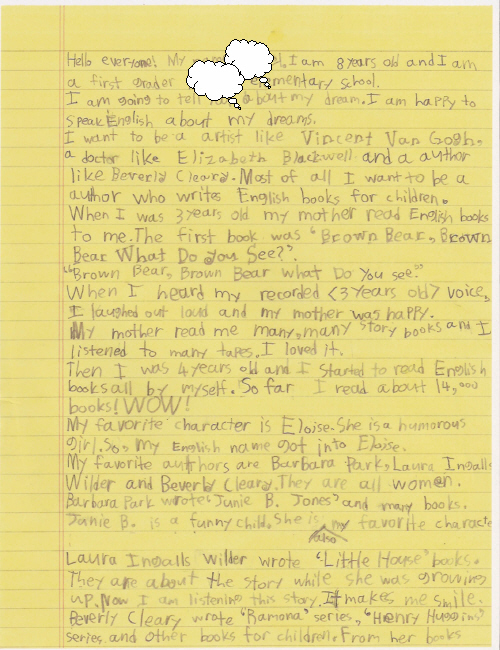 Hello everyone! My I am 8 years old and I am
a first grader elementary school.
I am going to tell about my dream. I am happy to
speak English about my dreams.
I want to be a artist like Vincent Van Gogh,
a doctor like Elizabeth Blackwell and a author
like Beverly Cleary. Most of all I want to be a
author who writes English books for children.
When I was 3 years old my mother read English books
to me. The first book was "Brown Bear, Brown
Bear What Do you See?".
"Brown Bear, Brown Bear what Do You see."
When I heard my recorded <3 years old> voice,
I laughed out loud and my mother was happy.
My mother read me many, many story books and I
listened to many tapes. I loved it.
Then I was 4 years old and I started to read English
books all by myself. So far I read about 14,000
books! WOW!
My favorite character is Eloise. She is a humorous
girl. So, my English name got into Eloise.
My favorite authors are Barbara Park, Laura Ingalls
Wilder and Beverly Cleary. They are all women.
Barbara Park wrote "Junie B. Jones" and many books.
Junie B. is a funny child. She is my favorite characte
also
Laura Ingalls Wilder wrote "Little House" books.
They are about the story while she was growing
up. Now I am listening this story. It makes me smile.
Beverly Cleary wrote "Ramona" series, "Henry Huggins"
series and other books for children. From her books